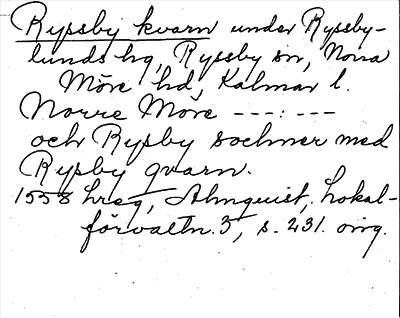 Rypsby kvarn under Ryssby-
lunds hg, Ryssby sn, Norra
Möre hd, Kalmar l.
Norre Möre ---:---
och Rypby sochner med
Rypby qvarn.
1558 hreg, Almquist, Lokal-
förvaltn. 3, s. 231. orig.